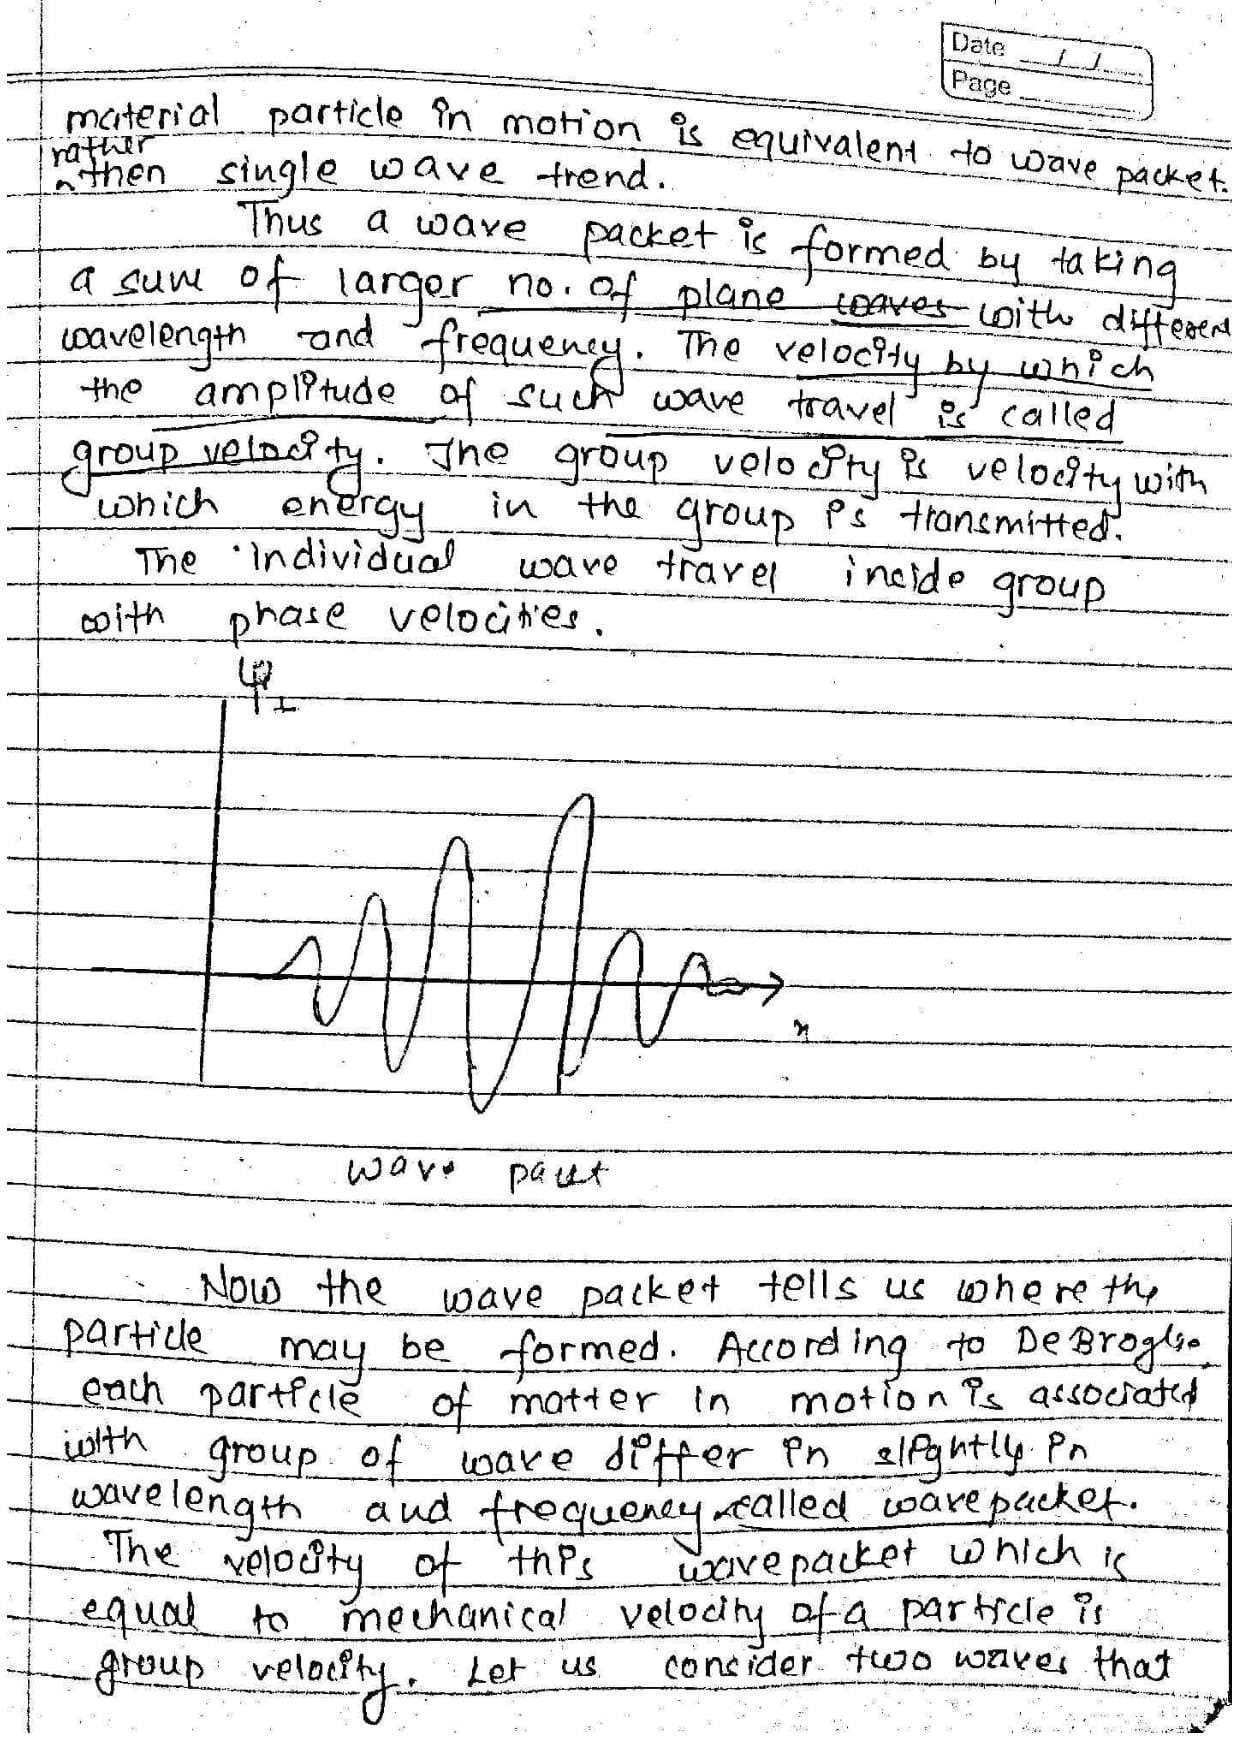 Date / /
Page
material particle in motion is equivalent to wave packet.
rather
then single wave trend.
Thus a wave packet is formed by taking
a sum of larger no. of plane waves with different
wavelength and frequency. The velocity by which
the amplitude of such wave travel is called
group velocity. The group velocity is velocity with
which energy in the group is transmitted.
The individual wave travel inside group
with phase velocities.
ψ
x
wave packt
Now the wave packet tells us where the
particle may be formed. According to De Broglie
each particle of matter in motion is associated
with group of wave differ in slightly in
wavelength and frequency called wave packet.
The velocity of this wavepacket which is
equal to mechanical velocity of a particle is
group velocity. Let us consider two waves that